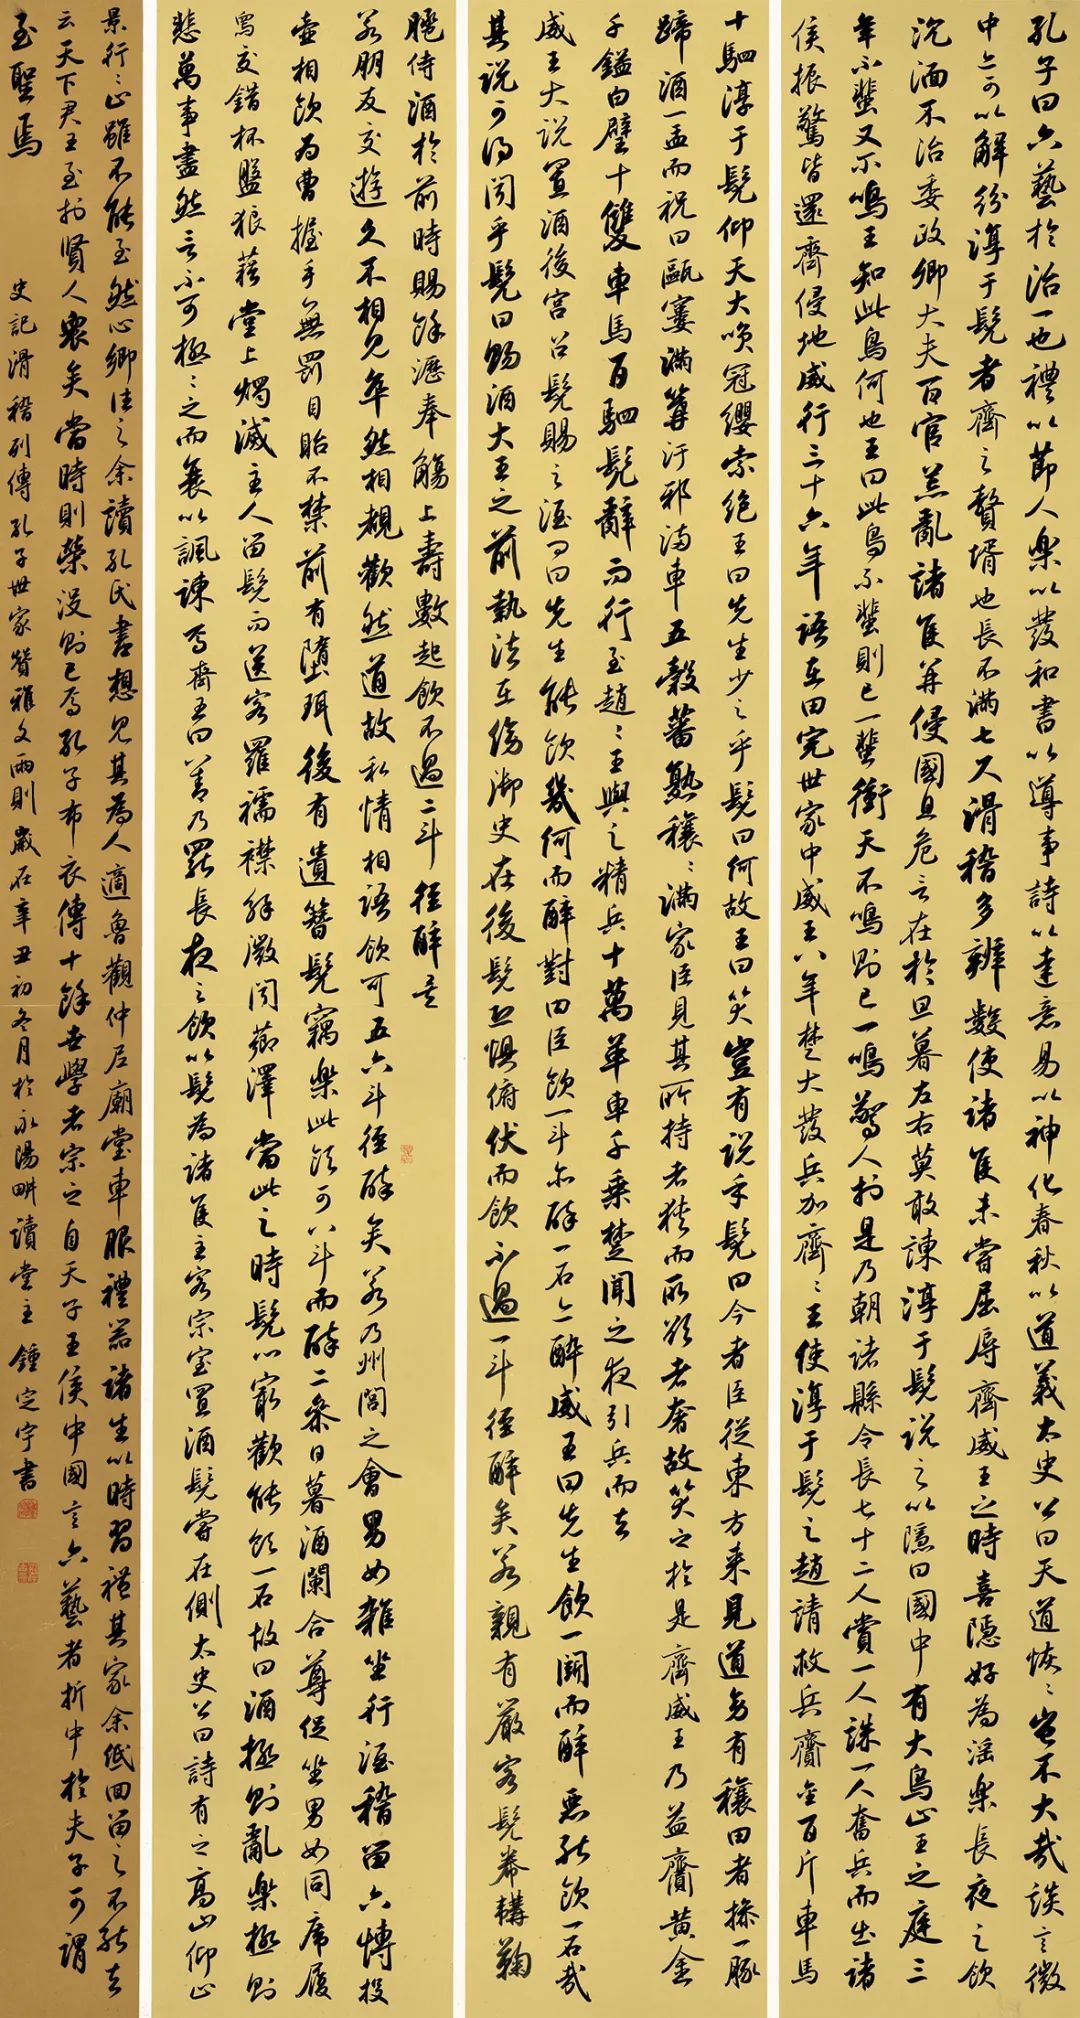 孔子曰六藝於治一也禮以節人樂以發和書以導事詩以達意易以神化春秋以道義太史公曰天道恢〻豈不大哉談言微
中亦可以解紛淳于髡者齊之贅壻也長不滿七尺滑稽多辨數使諸侯未嘗屈辱齊威王之時喜隱好為淫樂長夜之飲
沉湎不治委政卿大夫百官荒亂諸侯并侵國且危亡在於旦暮左右莫敢諫淳于髡說之以隱曰國中有大鳥止王之庭三
年不蜚又不鳴王知此鳥何也王曰此鳥不蜚則已一蜚衝天不鳴則已一鳴驚人於是乃朝諸縣令長七十二人賞一人誅一人奮兵而出諸
侯振驚皆還齊侵地威行三十六年語在田完世家中威王八年楚大發兵加齊〻王使淳于髡之趙請救兵齎金百斤車馬
十駟淳于髡仰天大笑冠纓索絕王曰先生少之乎髡曰何敢王曰笑豈有說乎髡曰今者臣從東方來見道旁有穰田者操一豚
蹄酒一盂而祝曰甌窶滿篝汙邪滿車五穀蕃熟穰〻滿家臣見其所持者狹而所欲者奢故笑之於是齊威王乃益齎黃金
千鎰白璧十雙車馬百駟髡辭而行至趙〻王與之精兵十萬革車千乘楚聞之夜引兵而去
威王大說置酒後宮召髡賜之酒問曰先生能飲幾何而醉對曰臣飲一斗亦醉一石亦醉威王曰先生飲一鬭而醉惡能飲一石哉
其說可得聞乎髡曰賜酒大王之前執法在傍御史在後髡恐懼俯伏而飲不過一斗徑醉矣若親有嚴客髡帣韝鞠
䠆侍酒於前時賜餘瀝奉觴上壽數起飲不過二斗徑醉矣
若朋友交遊久不相見卒然相覩歡然道故私情相語飲可五六斗徑醉矣若乃州閭之會男女雜坐行酒稽留六博投
壺相飲為曹握手無罰目眙不禁前有墮珥後有遺簪髡竊樂此飲可八斗而醉二參日暮酒闌合尊促坐男女同席履
舃交錯杯盤狼藉堂上燭滅主人留髡而送客羅襦襟解微聞薌澤當此之時髡心最歡能飲一石故曰酒極則亂樂極則
悲萬事盡然言不可極〻之而衰以諷諫焉齊王曰善乃罷長夜之飲以髡為諸侯主客宗室置酒髡嘗在側太史公曰詩有之高山仰止
景行〻止雖不能至然心鄉往之余讀孔氏書想見其為人適魯觀仲尼廟堂車服禮器諸生以時習禮其家余低回留之不能去
云天下君王至於賢人衆矣當時則榮沒則已焉孔子布衣傳十餘世學者宗之自天子王侯中國言六藝者折中於夫子可謂
至聖焉
史記滑稽列傳孔子世家贊雅文兩則歲在辛丑初冬月於永陽畊讀堂主鍾定宇書